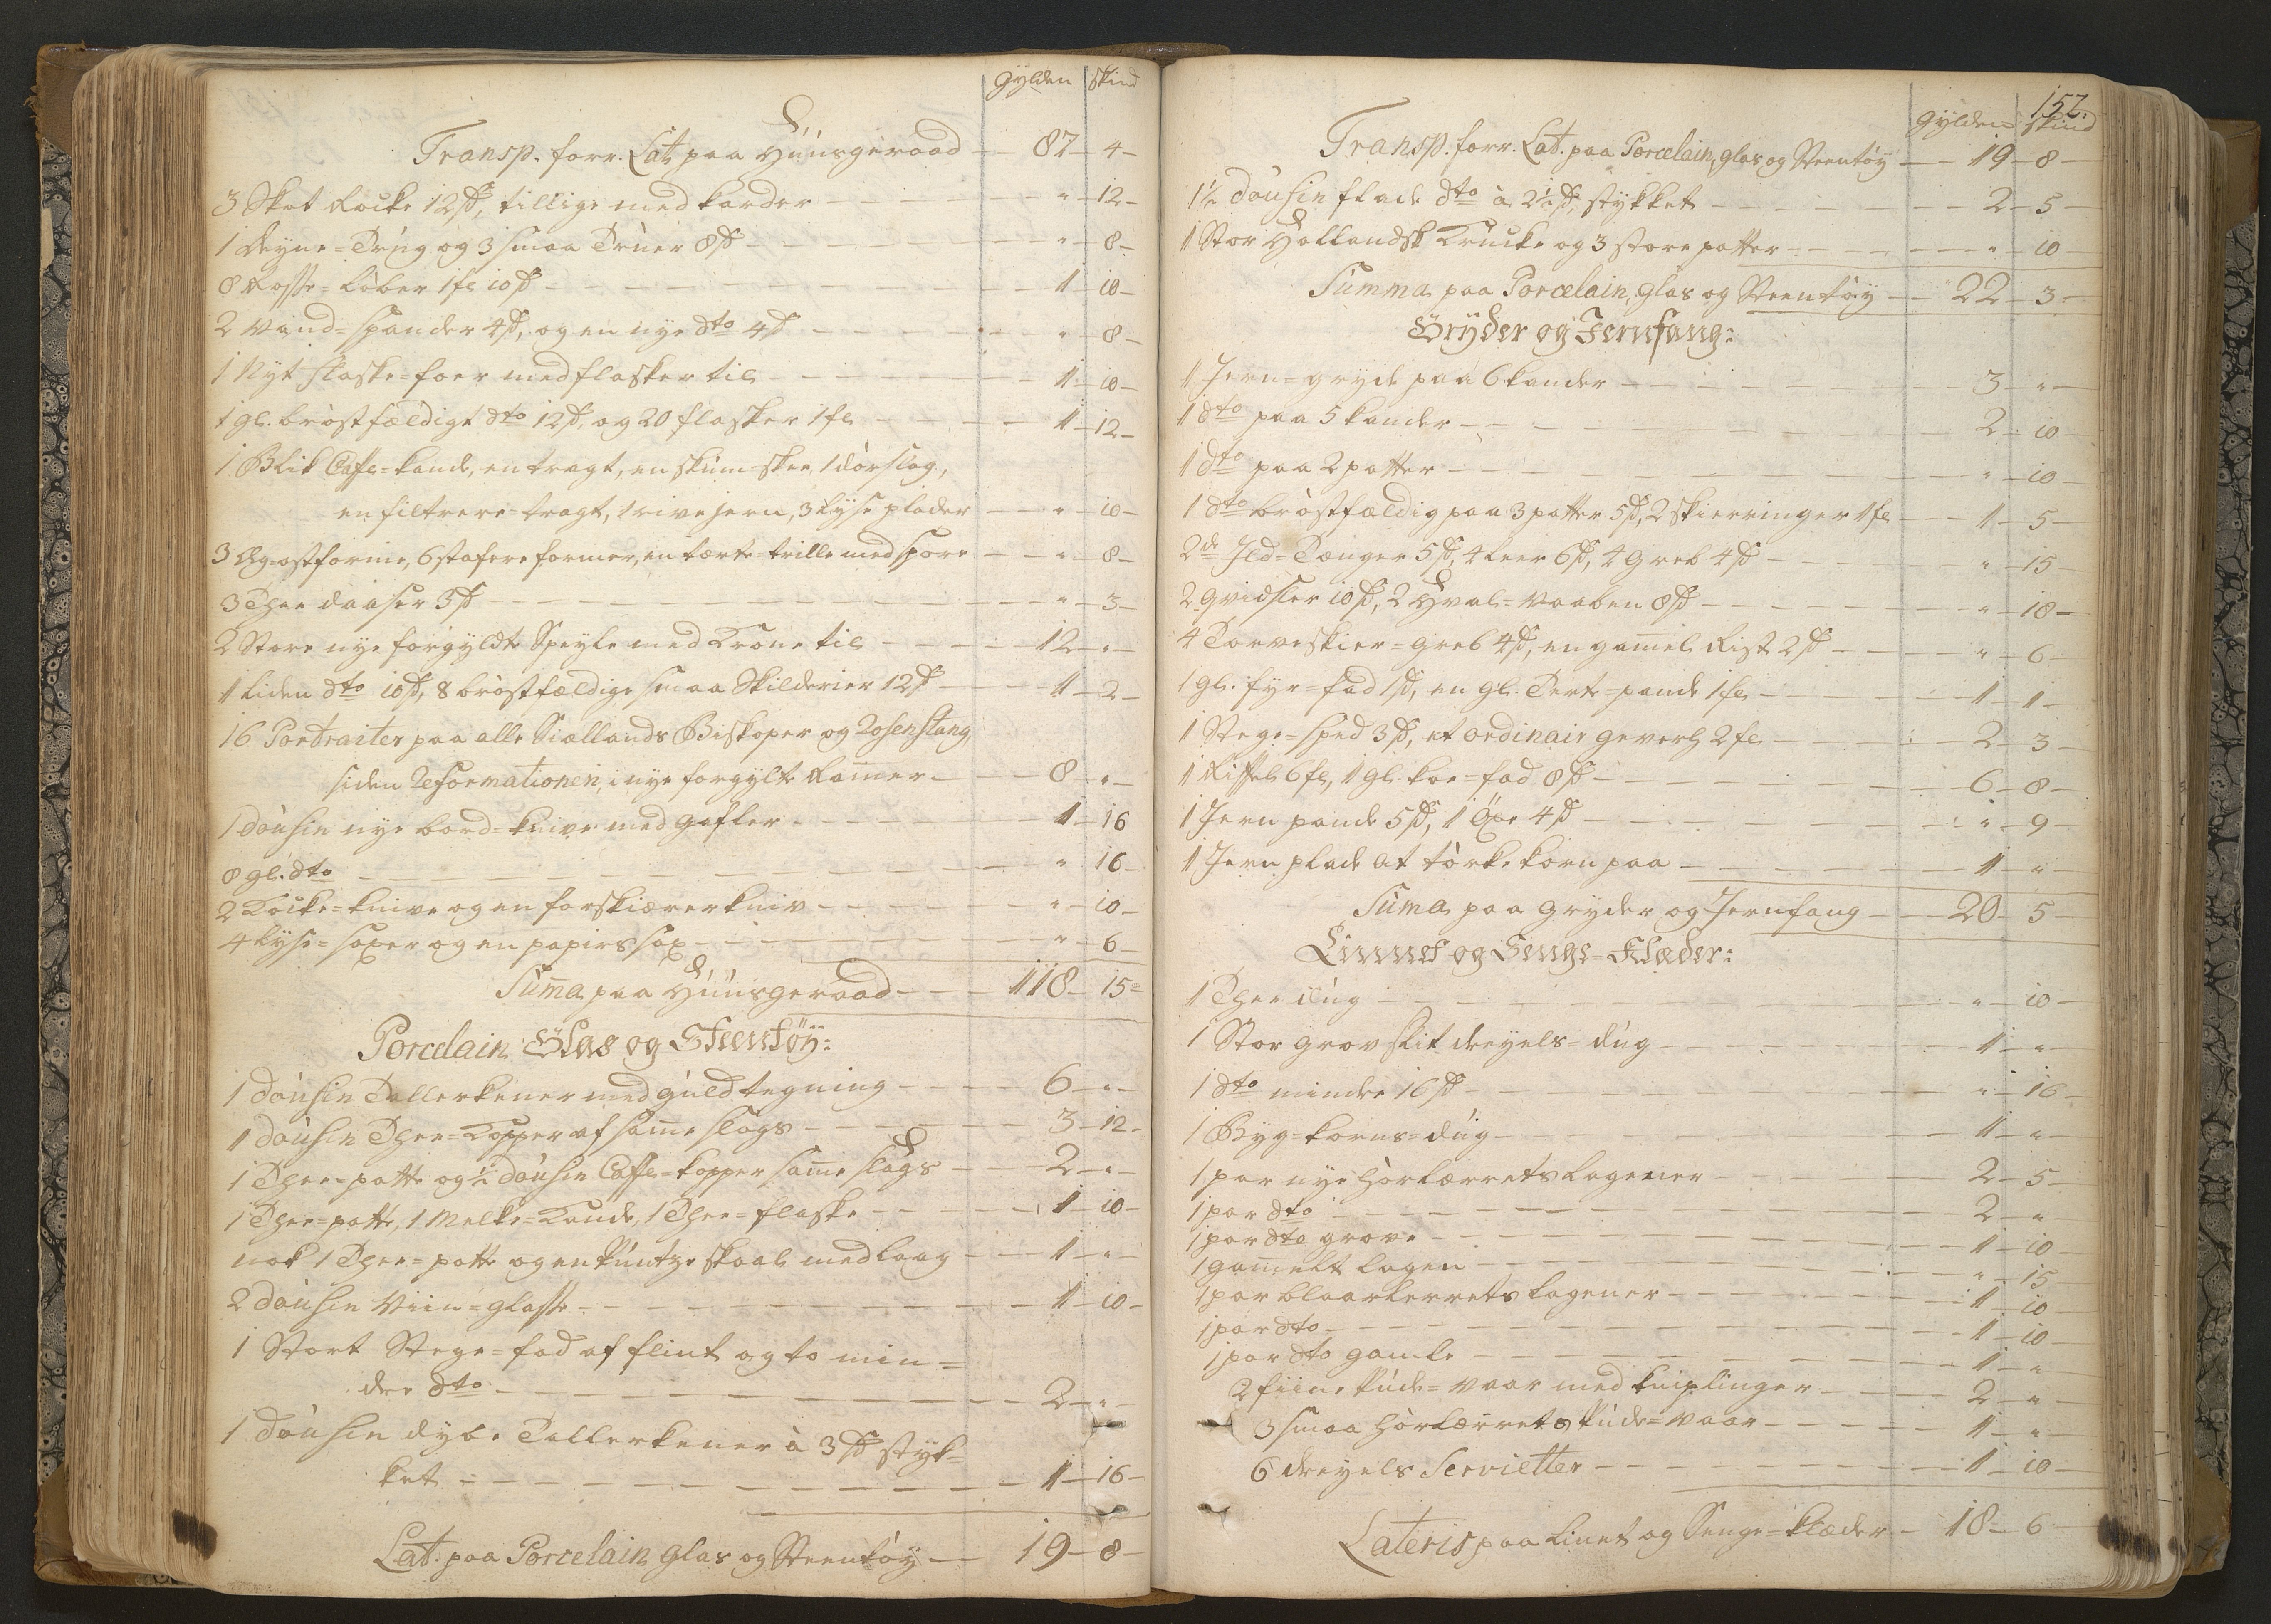 Gylden Skind
Transp. forr. Lat. paa Huusgeraad — 87 — 4 —
3 Skot Rocke 12 sk, tillige med karder — " — 12 —
1 Deyne=Trug og 3 smaa Truer 8 sk — " — 8 —
8 Rosse=Løber 1 fl 10 sk — 1 — 10 —
2 Vand=Spander 4 sk, og en nye dto 4 sk — " — 8 —
1 Nyt flaske=foer med flasker til — 1 — 10 —
1 gl. brøstfældigt dto 12 sk, og 20 flasker 1 fl — 1 — 12 —
1 Blik Caffe=kande, en tragt, en skum=skee, 1 dørslag,
en filtrere=tragt, 1 rivejern, 3 lyse plader — " — 10 —
3 Eg=ostforme, 6 former, en tærte=trille med spore — " — 8 —
3 Thee daaser 3 sk — " — 3 —
2 Store nye forgyldte Speyle med Krone til — 12 — " —
1 liden dto 10 sk, 8 brøstfældige smaa Skilderier 12 sk — 1 — 2 —
16 Portraiter paa alle Siællands Biskoper og Rosenstang,
siden Reformationen, i nye forgylte Ramer — 8 — " —
1 dousin nye bord=knive med gafler — 1 — 16
8 gl. dto — " — 16 —
2 Kocke=knive og en forskiærer kniv — " — 10 —
4 lyse=saxer og en papirs sax — " — 6 —
Suma paa Huusgeraad — 118 — 15 =
Porcelain Glas og Steentøy:
1 dousin Tallerkener med guld tegning — 6 — " —
1 dousin Thee=Kopper af same slags — 3 — 12 —
1 Thee=potte og ½ dousin Caffe=kopper same slags — 2 — " —
1 Thee=potte, 1 Melke=Kande, 1 Thee=flaske — 1 — 10 —
nok 1 Thee=potte og en Puntze skaal med laag — 1 — " —
2 dousin Viin=glasse — 1 — 10 —
1 Stort Stege=fad af flint og to min=
dre dto — 2 — " —
1 dousin dybe Tallerkener à 3 sk styk=
ket — 1 — 16 —
Lat. paa Porcelain Glas og Steentøy — 19 — 8 —
157.
Gylden Skind
Transp. forr. Lat. paa Porcelain, glas og Steentøy — 19 — 8 —
1½ dousin flade dto à 2½ sk stykket — 2 — 5 —
1 Stor Hollandsk Krucke og 3 store potter — " — 10
Summa paa Porcelain, glas og Steentøy — 22 — 3 —
Gryder og Jernfang:
1 Jern=gryde paa 6 kander — 3 — " —
1 dto paa 5 kander — 2 — 10 —
1 dto paa 2 potter — " — 10 —
1 dto brøstfældig paa 3 potter 5 sk, 2 skierringer 1 fl — 1 — 5 —
2de Ild=Tænger 5 sk, 4 leer 6 sk, 4 greb 4 sk — " — 15 —
2 qvidsler 10 sk, 2 Hval=Vaaben 8 sk — " — 18 —
4 Torveskier=greb 4 sk, en gamel Rist 2 sk — " — 6 —
1 gl. fyr=fad 1 sk, en gl. Terte=pande 1 fl — 1 — 1 —
1 Stege=sped 3 sk, et ordinair geverh 2 fl — 2 — 3 —
1 Riffel 6 fl, 1 gl. koe=fad 8 sk — 6 — 8 —
1 Jern pande 5 sk, 1 Øxe 4 sk — " — 9 —
1 Jern plade at tørke korn paa — 1 — " —
Suma paa gryder og Jernfang — 20 — 5 —
Linnet og Senge=Klæder:
1 Thee dug — " — 10 —
1 Stor grov slit dreyels=dug — 1 — " —
1 dto mindre 16 sk — " — 16 —
1 Byg=korns=dug — 1 — " —
1 par nye hørlærrets Lagener — 2 — 5 —
1 par dto — 2 — " —
1 par dto grove — 1 — 10 —
1 gamelt lagen — " — 15 —
1 par blaarlerrets Lagener — 1 — 10
1 par dto — 1 — 10 —
1 par dto gamle — 1 — " —
2 fiine Pude=Vaar med kniplinger — 2 — " —
3 smaa hørlærrets Pude=Vaar — 1 — " —
6 dreyels Servietter — 1 — 10 —
Lateris paa Linet og Senge=klæder — 18 — 6